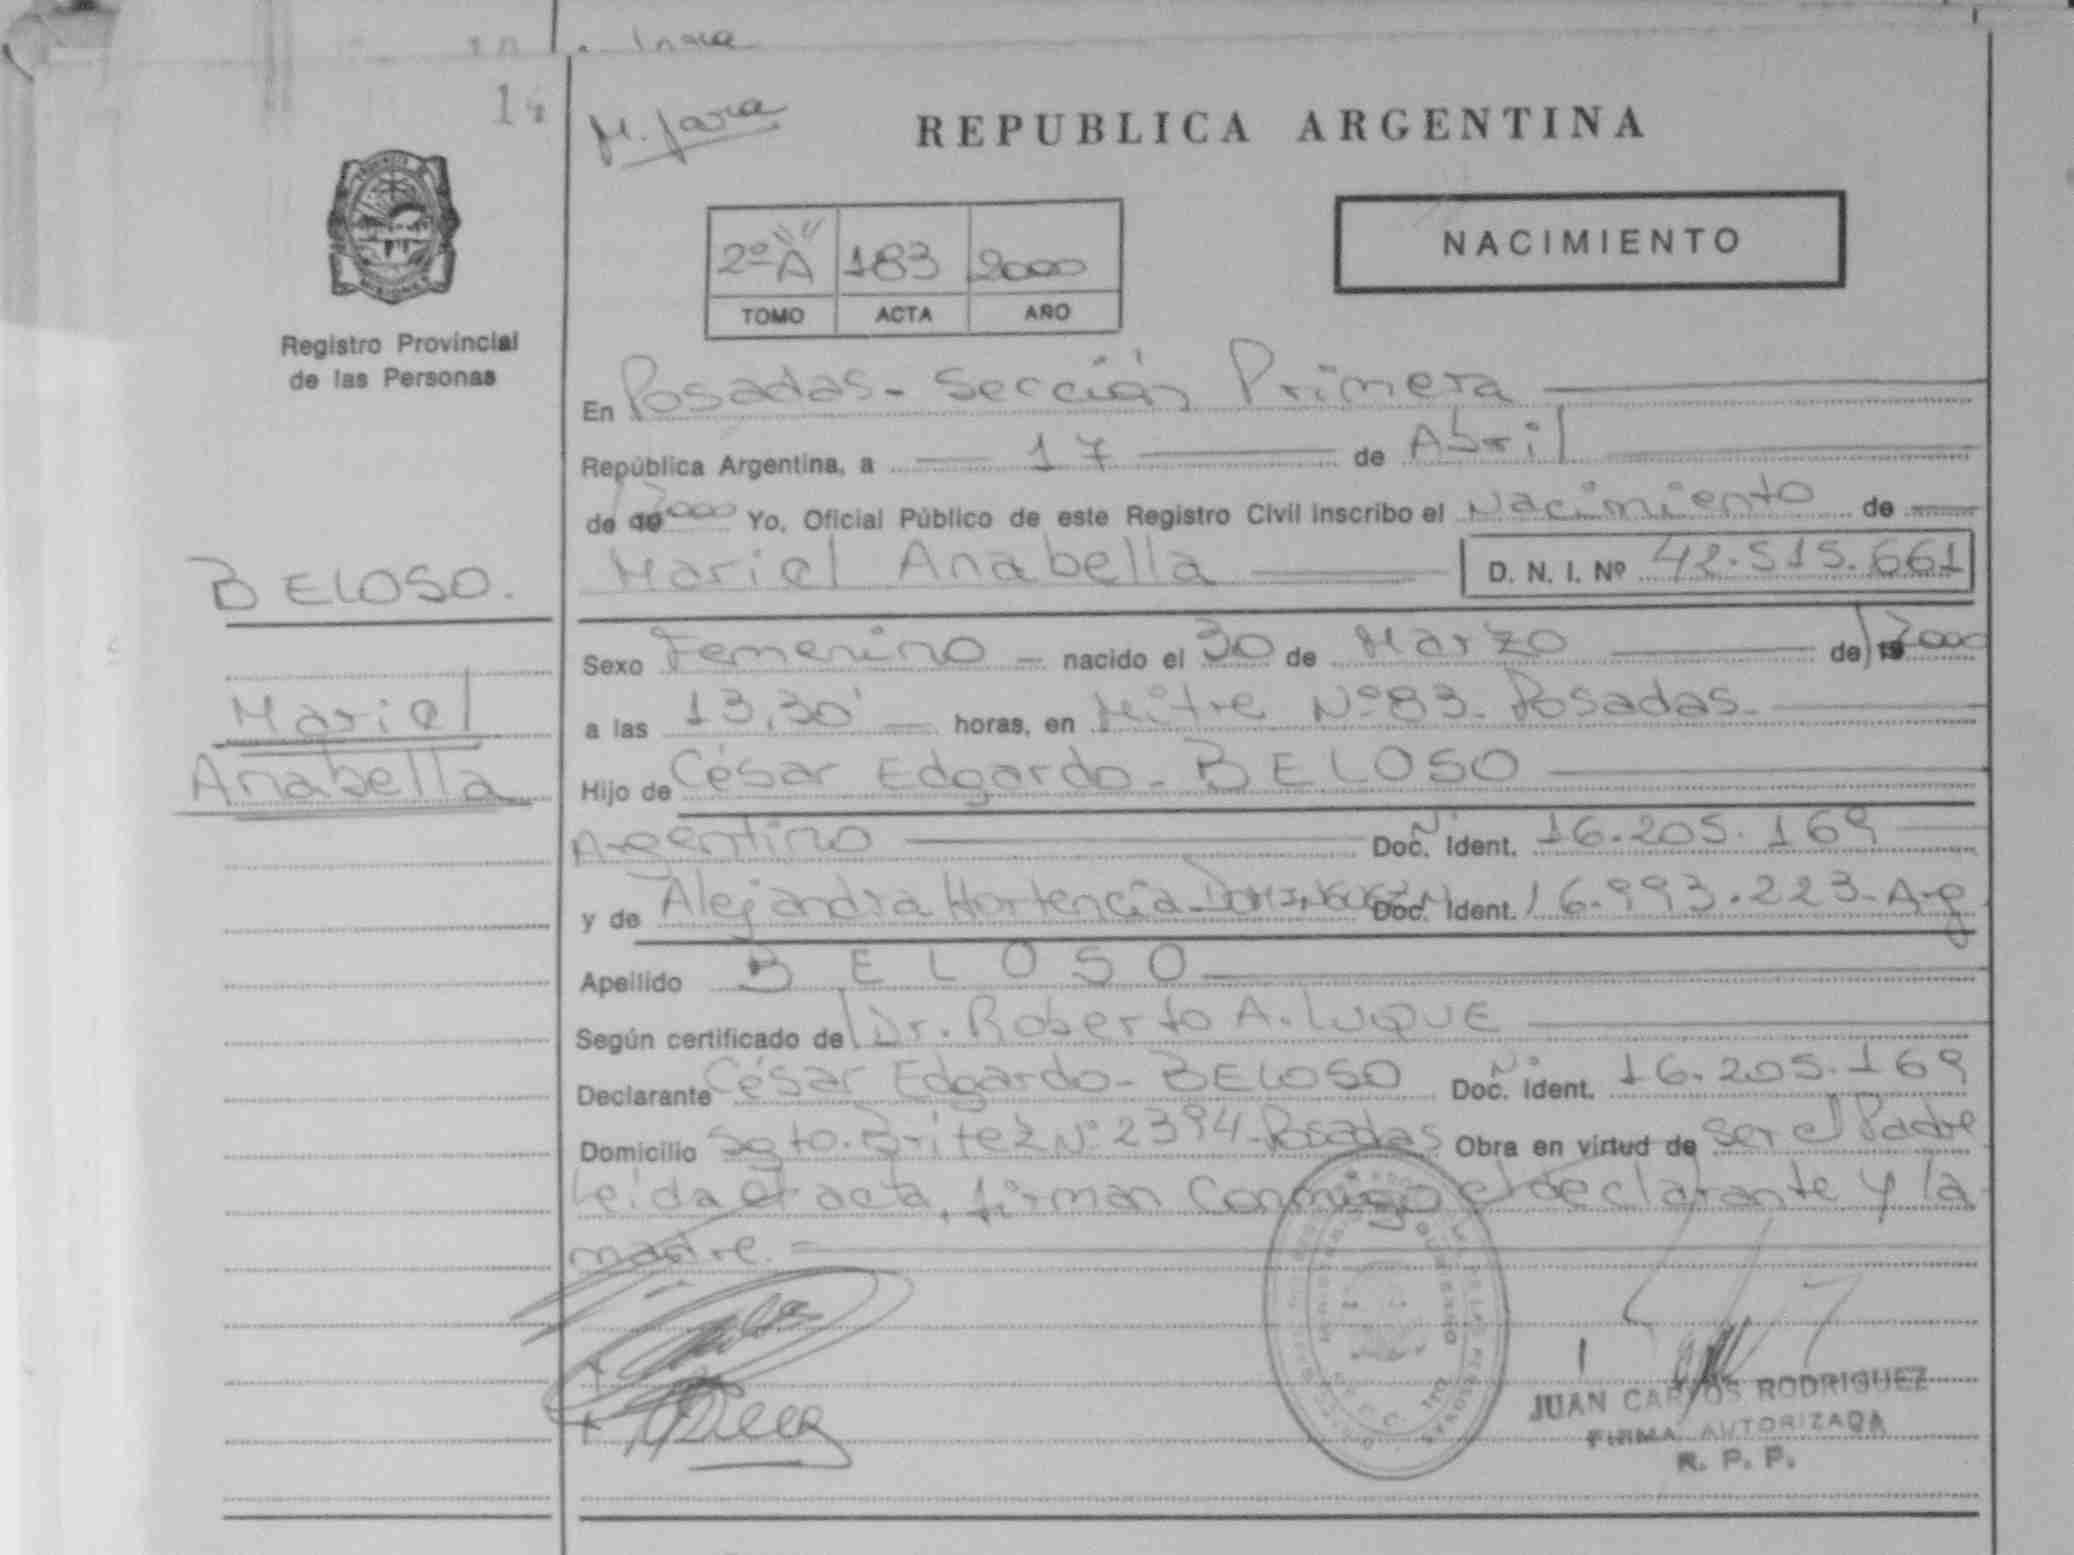 14
M. Jara
REPUBLICA ARGENTINA
NACIMIENTO
2º "A" 183 2000
TOMO ACTA AÑO
Registro Provincial
de las Personas
En Posadas - Sección Primera
República Argentina, a 17 de Abril
de 2000 Yo, Oficial Público de este Registro Civil inscribo el Nacimiento de
Mariel Anabella D. N. I. Nº 42.515.661
BELOSO.
Mariel
Anabella
Sexo Femenino nacido el 30 de Marzo de 2000
a las 13,30' horas, en Mitre Nº 83 - Posadas -
Hijo de César Edgardo - BELOSO
Argentino Doc. Nº Ident. 16.205.169
y de Alejandra Hortencia - DOMINGUEZ Doc. Nº Ident. 16.993.223 - Arg
Apellido BELOSO
Según certificado de Dr. Roberto A. LUQUE
Declarante César Edgardo - BELOSO Doc. Nº Ident. 16.205.169
Domicilio Sgto. Britez Nº 2394 - Posadas Obra en virtud de ser el Padre
Leida el acta, firman Conmigo el declarante y la
madre. -
JUAN CARLOS RODRIGUEZ
FIRMA AUTORIZADA
R. P. P.